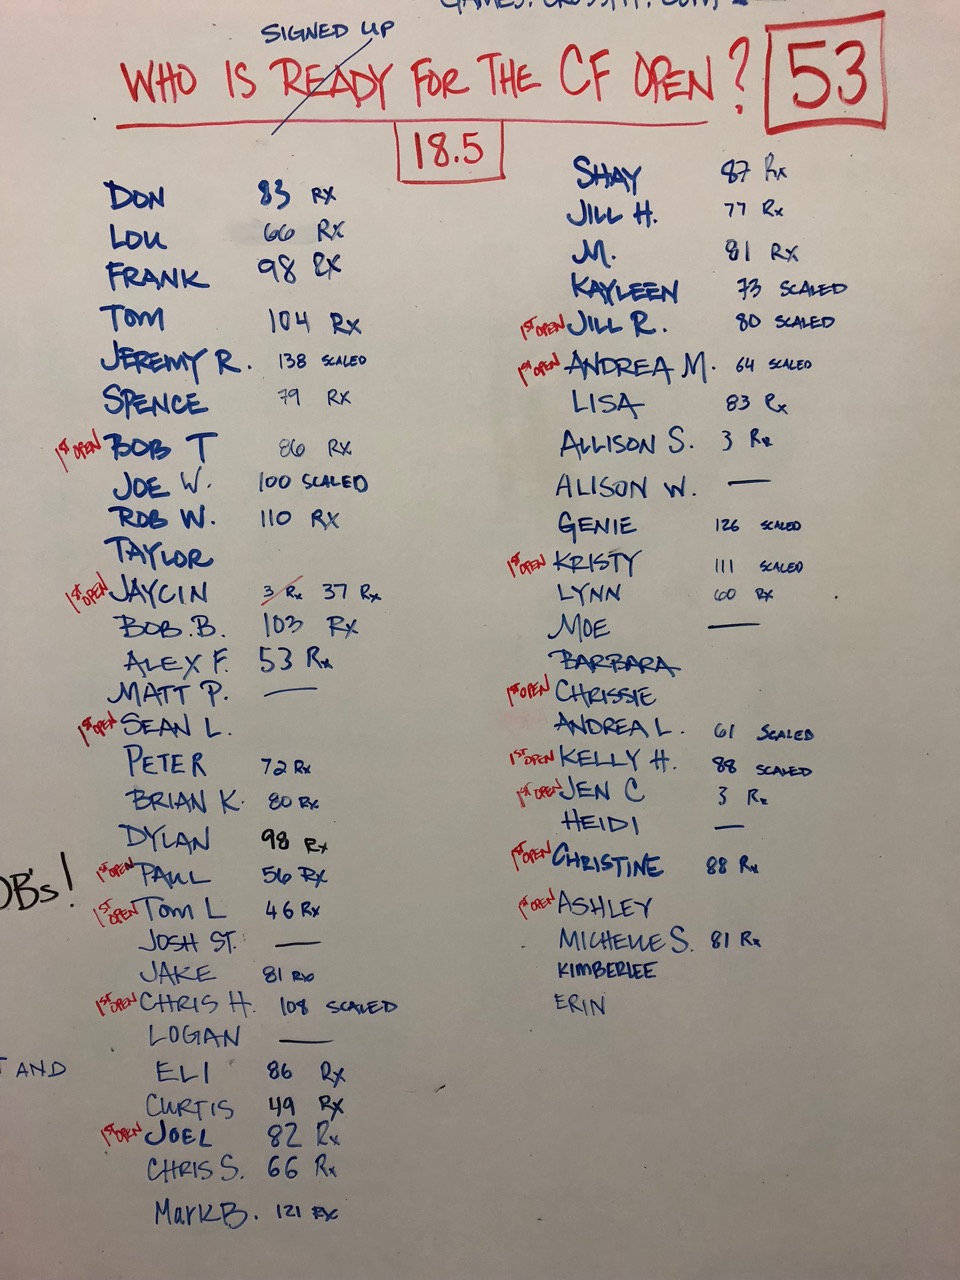 GAMES.CROSSFIT.COM
SIGNED UP
WHO IS READY FOR THE CF OPEN? 53
18.5
DON 83 RX
LOU 66 RX
FRANK 98 RX
TOM 104 RX
JEREMY R. 138 SCALED
SPENCE 79 RX
1ST OPEN BOB T 86 RX
JOE W. 100 SCALED
ROB W. 110 RX
TAYLOR
1ST OPEN JAYCIN 3 Rx 37 Rx
BOB.B. 103 RX
ALEX F. 53 Rx
MATT P. —
1ST OPEN SEAN L.
PETER 72 Rx
BRIAN K. 80 Rx
DYLAN 98 Rx
OB's!
1ST OPEN PAUL 56 Rx
1ST OPEN TOM L 46 Rx
JOSH ST. —
JAKE 81 Rx
1ST OPEN CHRIS H. 108 SCALED
LOGAN —
T AND
ELI 86 Rx
CURTIS 49 Rx
1ST OPEN JOEL 82 Rx
CHRIS S. 66 Rx
MarkB. 121 RX
SHAY 87 Rx
JILL H. 77 Rx
M. 81 Rx
KAYLEEN 73 SCALED
1ST OPEN JILL R. 80 SCALED
1ST OPEN ANDREA M. 64 SCALED
LISA 83 Rx
ALLISON S. 3 Rx
ALISON W. —
GENIE 126 SCALED
1ST OPEN KRISTY 111 SCALED
LYNN 60 Rx
MOE —
BARBARA
1ST OPEN CHRISSIE
ANDREA L. 61 SCALED
1ST OPEN KELLY H. 88 SCALED
1ST OPEN JEN C 3 Rx
HEIDI —
1ST OPEN CHRISTINE 88 Rx
1ST OPEN ASHLEY
MICHELLE S. 81 Rx
KIMBERLEE
ERIN